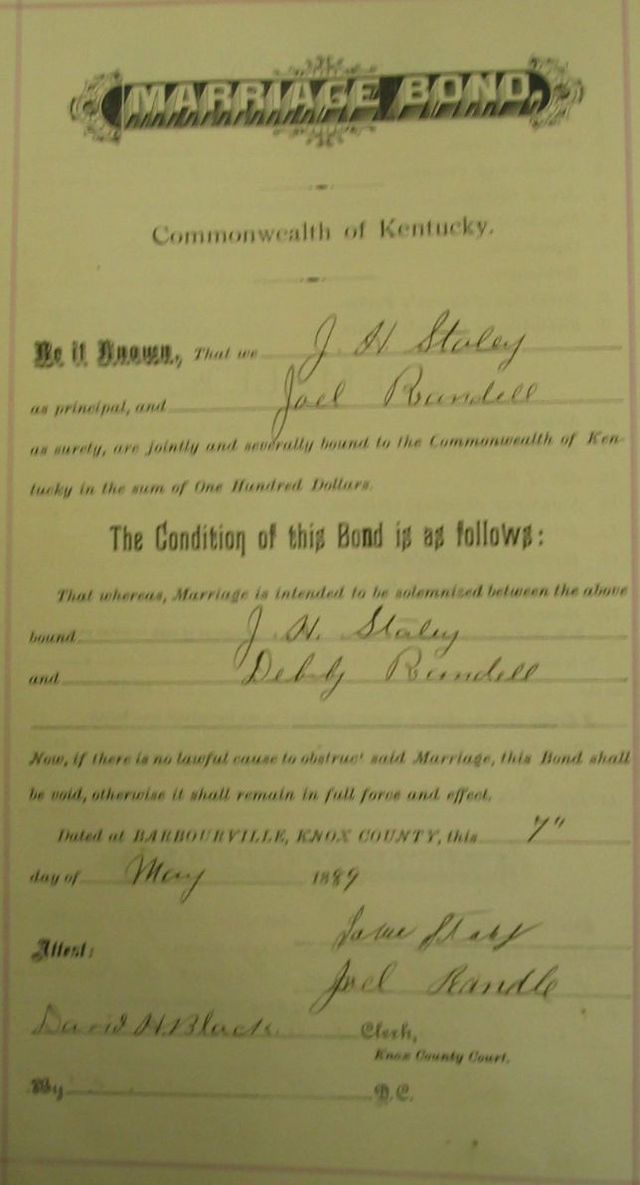 MARRIAGE BOND,
Commonwealth of Kentucky.
Be it Known, That we J. H Staley
as principal, and Joel Randell
as surety, are jointly and severally bound to the Commonwealth of Ken-
tucky in the sum of One Hundred Dollars.
The Condition of this Bond is as follows:
That whereas, Marriage is intended to be solemnized between the above
bound J. H. Staley
and Debly Randell
Now, if there is no lawful cause to obstruct said Marriage, this Bond shall
be void, otherwise it shall remain in full force and effect.
Dated at BARBOURVILLE, KNOX COUNTY, this 7"
day of May 1889
Attest:
Joel Randle
David H. Black Clerk,
Knox County Court.
By D.C.